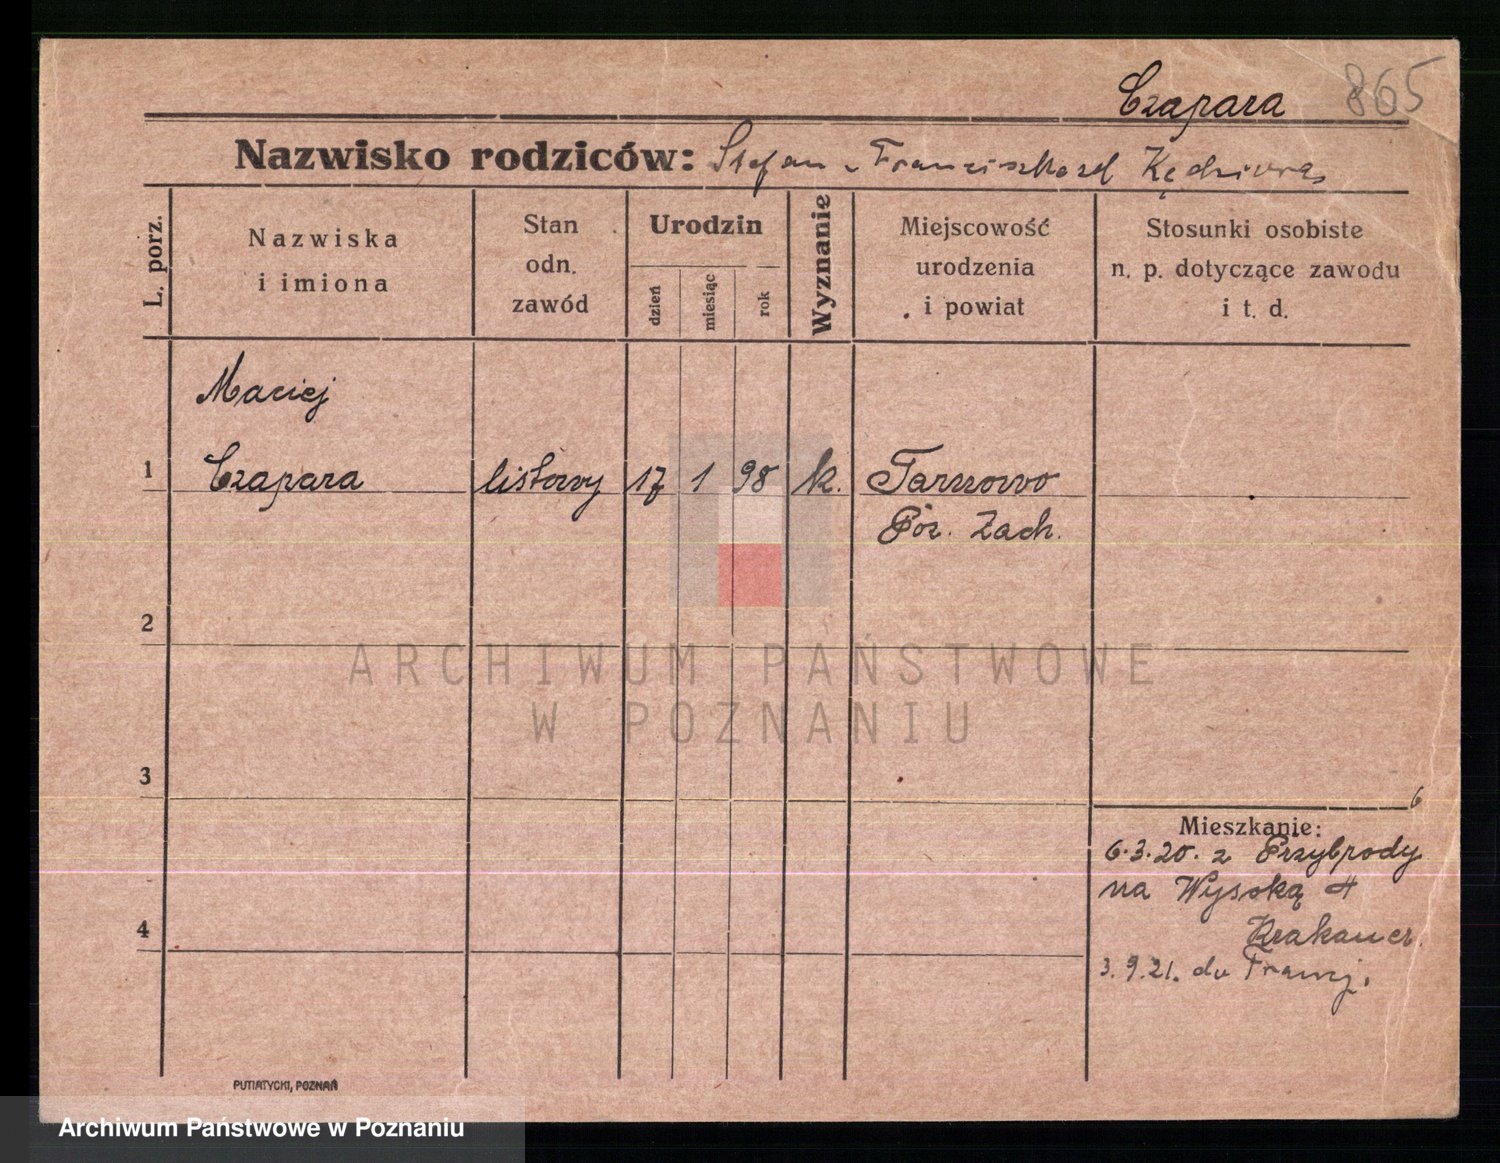 Czapara 865
Nazwisko rodziców: Stefan
L. porz.
Nazwiska
i imiona
Stan
odn.
zawód
Urodzin
dzień
miesiąc
rok
Wyznanie
Miejscowość
urodzenia
i powiat
Stosunki osobiste
n. p. dotyczące zawodu
i t. d.
Maciej
1 Czapara listowy 17 1 98 k. Tarnowo
Poz. Zach.
2
ARCHIWUM PAŃSTWOWE
W POZNANIU
3
6
Mieszkanie:
6.3.20. z Przybrody
na Wysoką 4
Krakauer.
3.9.21. do Francj.
4
PUTIATYCKI, POZNAŃ
Archiwum Państwowe w Poznaniu